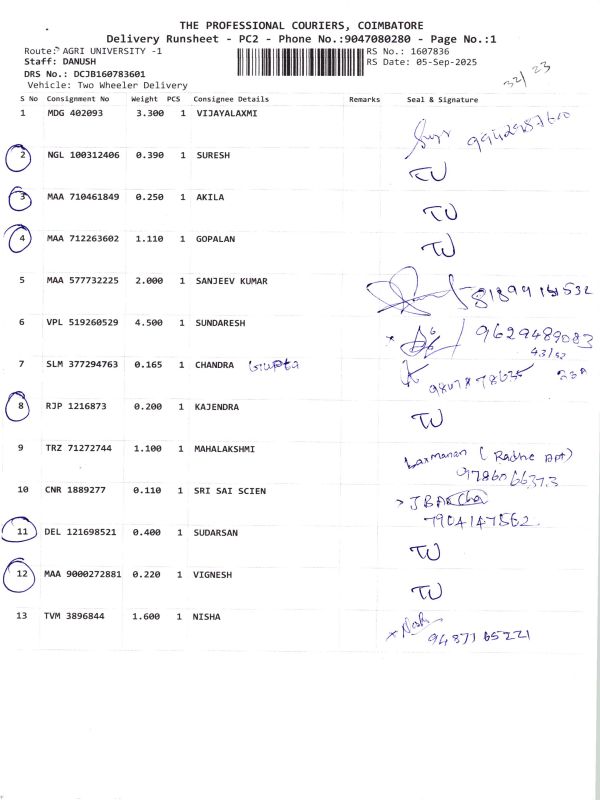 THE PROFESSIONAL COURIERS, COIMBATORE
Delivery Runsheet - PC2 - Phone No.:9047080280 - Page No.:1
Route: AGRI UNIVERSITY -1 RS No.: 1607836
Staff: DANUSH RS Date: 05-Sep-2025
DRS No.: DCJB160783601
Vehicle: Two Wheeler Delivery 32/23
S No Consignment No Weight PCS Consignee Details Remarks Seal & Signature
1 MDG 402093 3.300 1 VIJAYALAXMI
2 NGL 100312406 0.390 1 SURESH TU
3 MAA 710461849 0.250 1 AKILA TU
4 MAA 712263602 1.110 1 GOPALAN TU
5 MAA 577732225 2.000 1 SANJEEV KUMAR
6 VPL 519260529 4.500 1 SUNDARESH 9629489083
43/52
7 SLM 377294763 0.165 1 CHANDRA Gupta
8 RJP 1216873 0.200 1 KAJENDRA TU
9 TRZ 71272744 1.100 1 MAHALAKSHMI Laxmanan (Radhe Apt)
10 CNR 1889277 0.110 1 SRI SAI SCIEN
7904147562
11 DEL 121698521 0.400 1 SUDARSAN TU
12 MAA 9000272881 0.220 1 VIGNESH TU
13 TVM 3896844 1.600 1 NISHA
9487165221